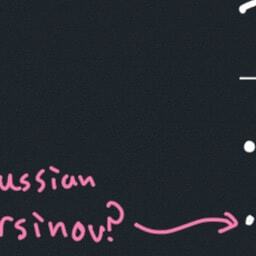 ussian
rsinov?